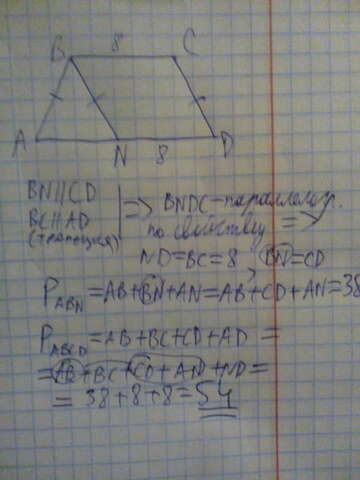 B 8 C
A N 8 D
BN||CD
BC||AD
(трапеция)
=> BNDC - параллелогр.
по свойству =>
ND=BC=8 BN=CD
P_ABN=AB+BN+AN=AB+CD+AN=38
P_ABCD=AB+BC+CD+AD =
=AB+BC+CD+AN+ND=
= 38+8+8=54